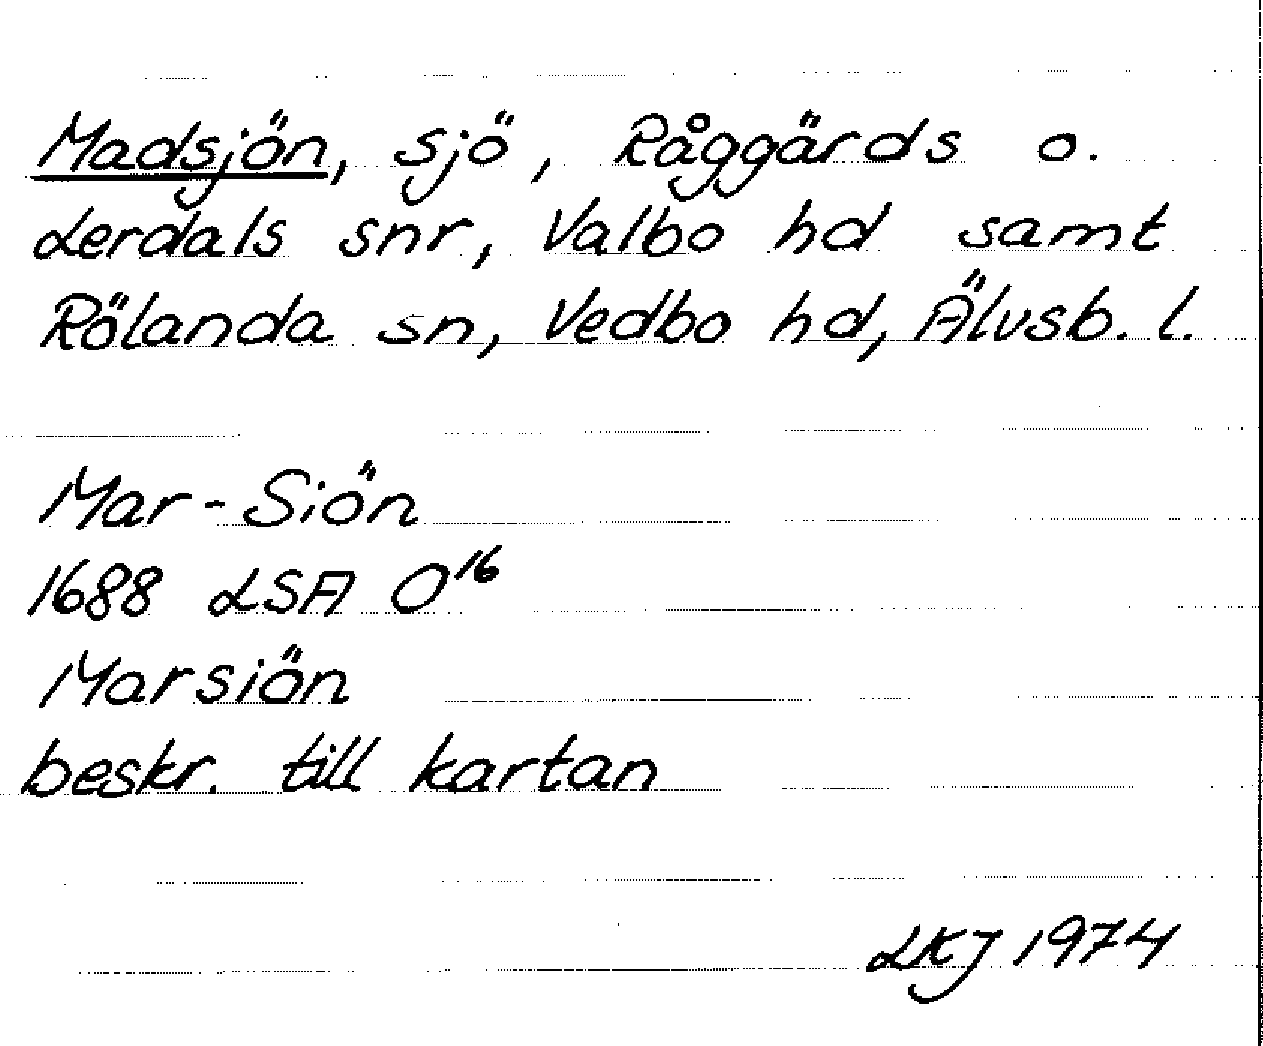 Madsjön, sjö, Råggärds o.
Lerdals snr, Valbo hd samt
Rölanda sn, Vedbo hd, Älvsb. l.
Mar-Siön
1688 LSA O¹⁶
Marsiön
beskr. till kartan
LKJ 1974